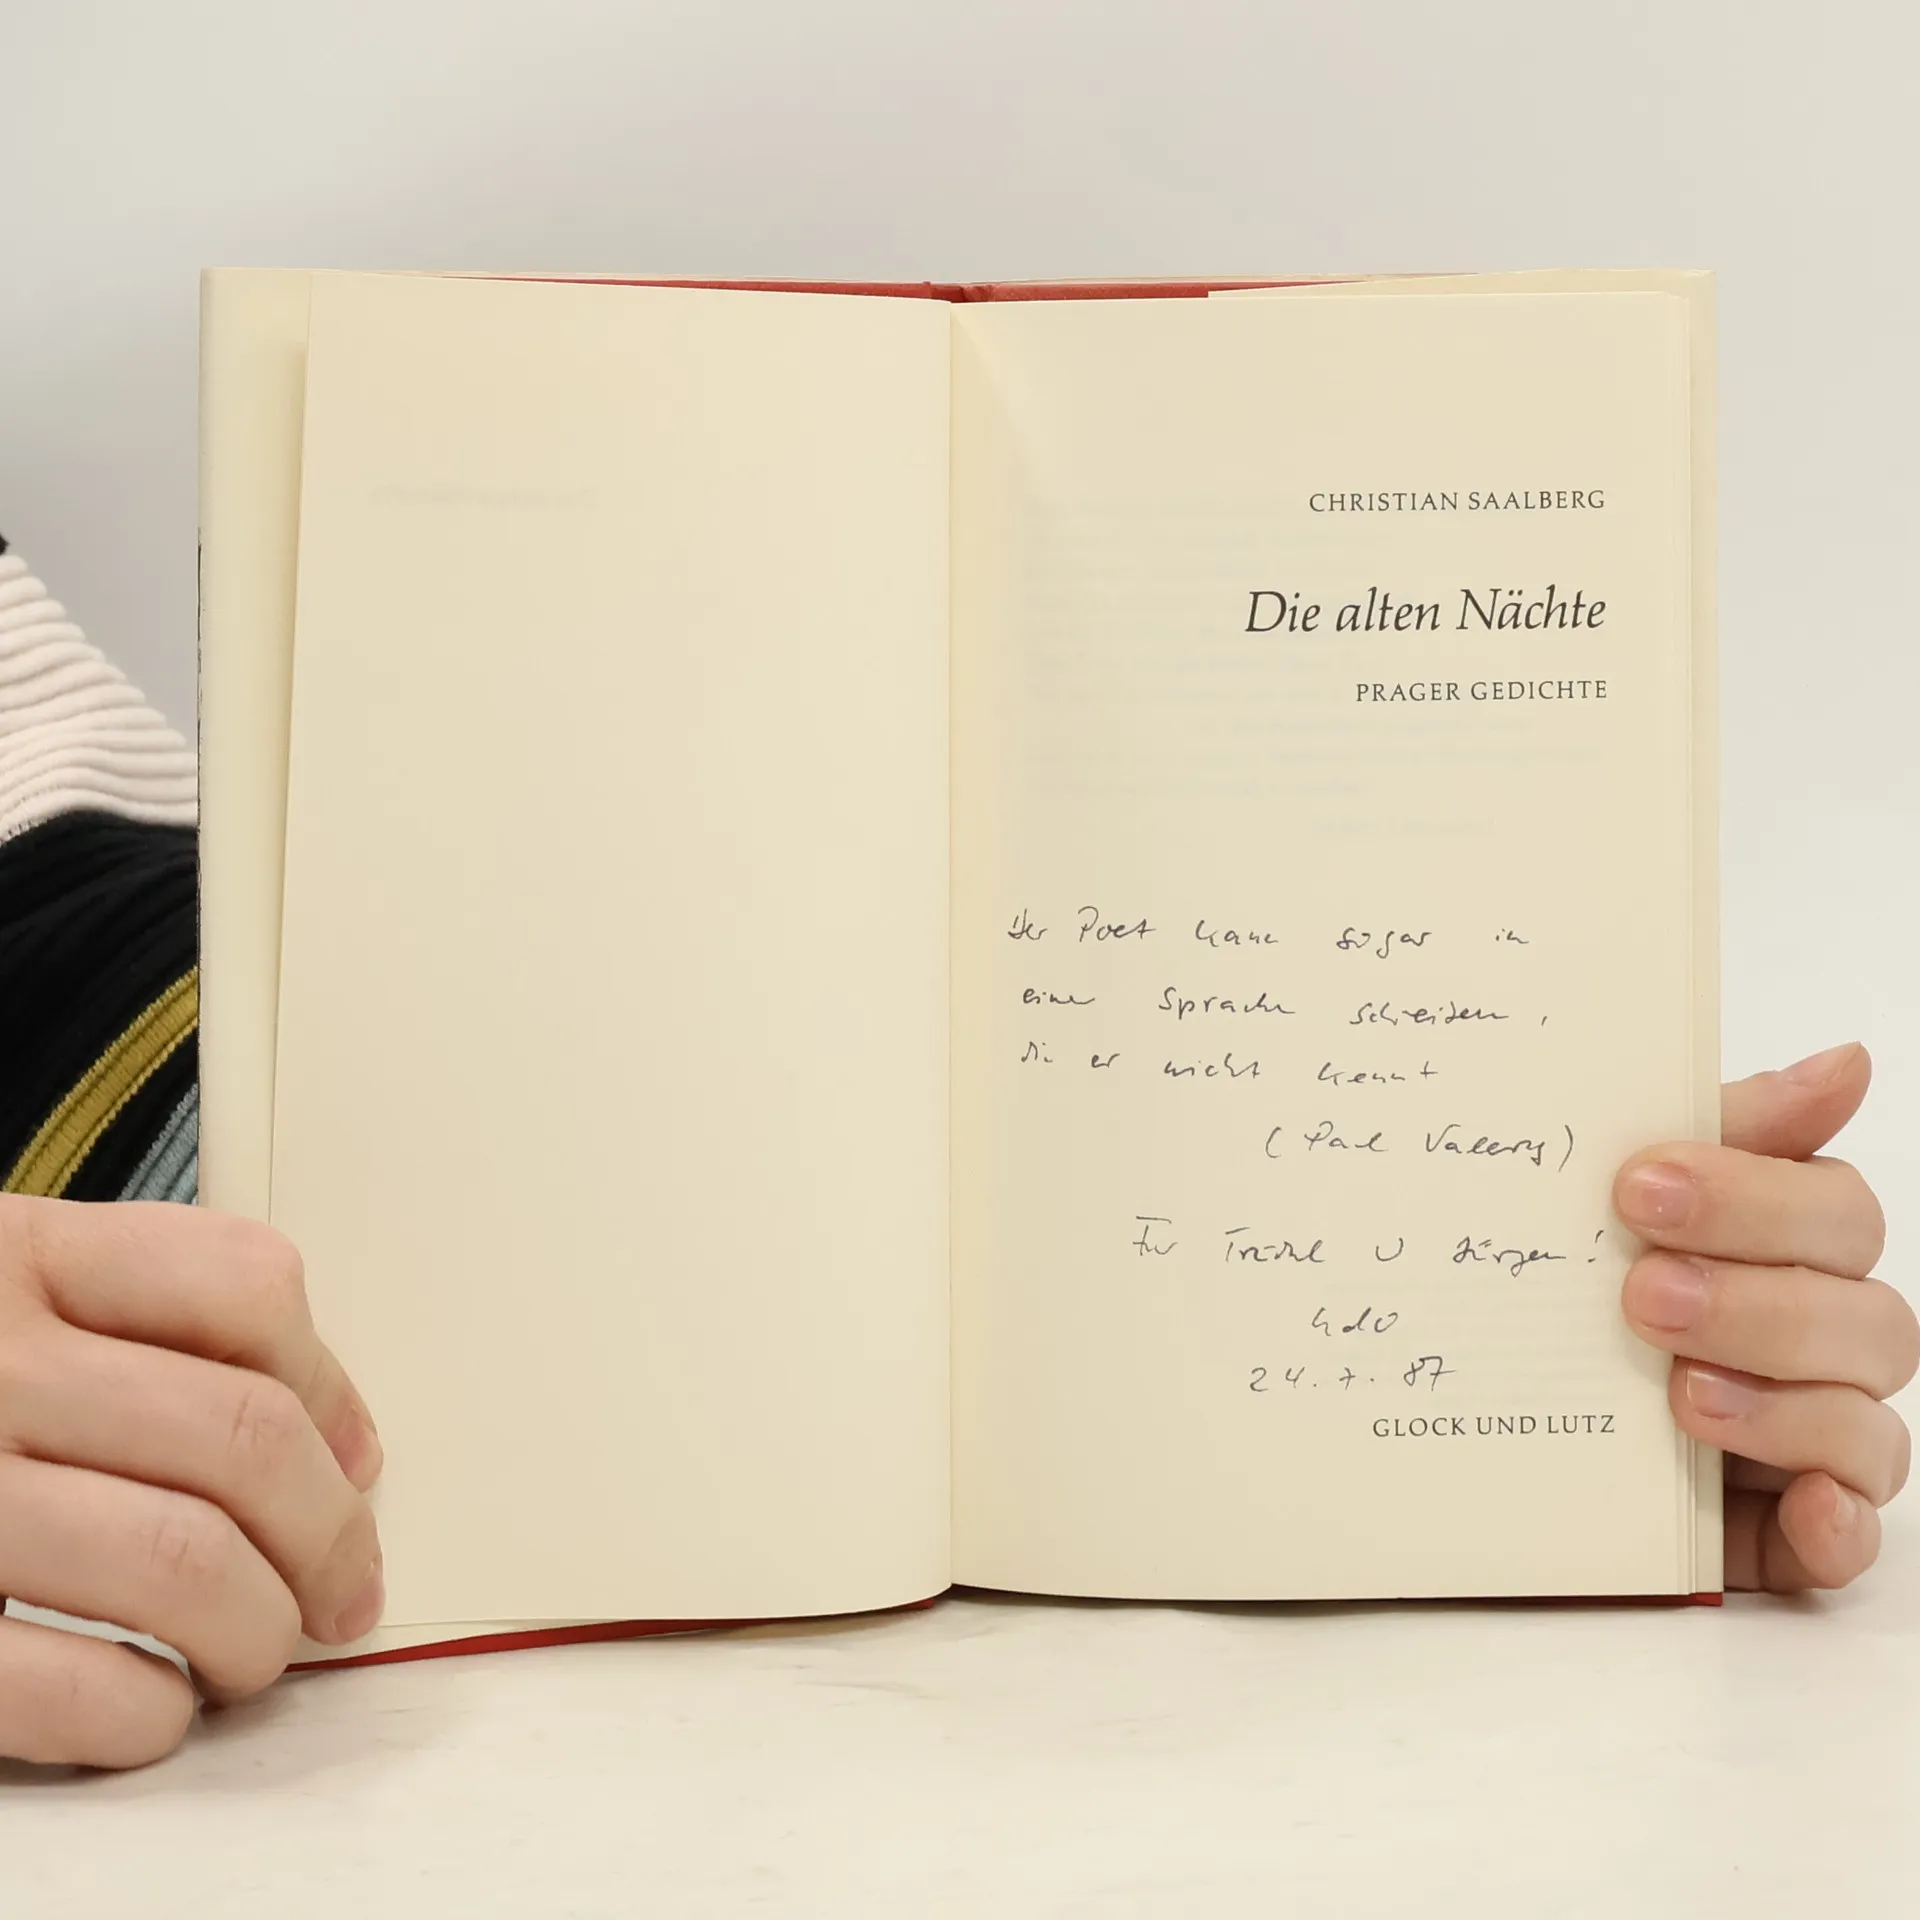 CHRISTIAN SAALBERG
Die alten Nächte
PRAGER GEDICHTE
Der Poet kann sogar in
einer Sprache schreiben,
die er nicht kennt
(Paul Valery)
Für U Jürgen!
Udo
24.7.87
GLOCK UND LUTZ